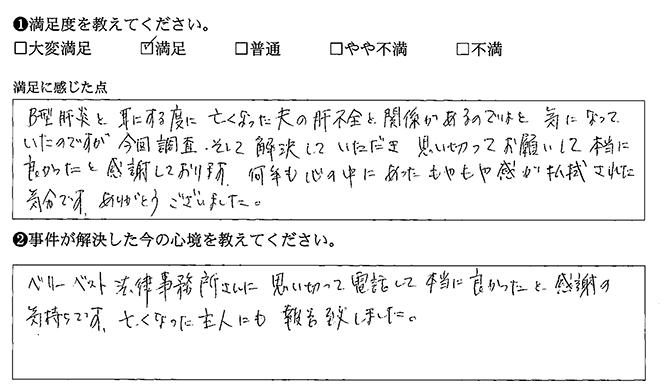 ❶満足度を教えてください。
□大変満足 ☑満足 □普通 □やや不満 □不満
満足に感じた点
B型肝炎と耳にする度に亡くなった夫の肝不全と関係があるのではと気になって
いたのですが今回調査、そして解決していただき思い切ってお願いして本当に
良かったと感謝しております。何年も心の中にあったもやもや感が払拭された
気分です。ありがとうございました。
❷事件が解決した今の心境を教えてください。
ベリーベスト法律事務所さんに思い切って電話して本当に良かったと感謝の
気持ちです。亡くなった主人にも報告致しました。